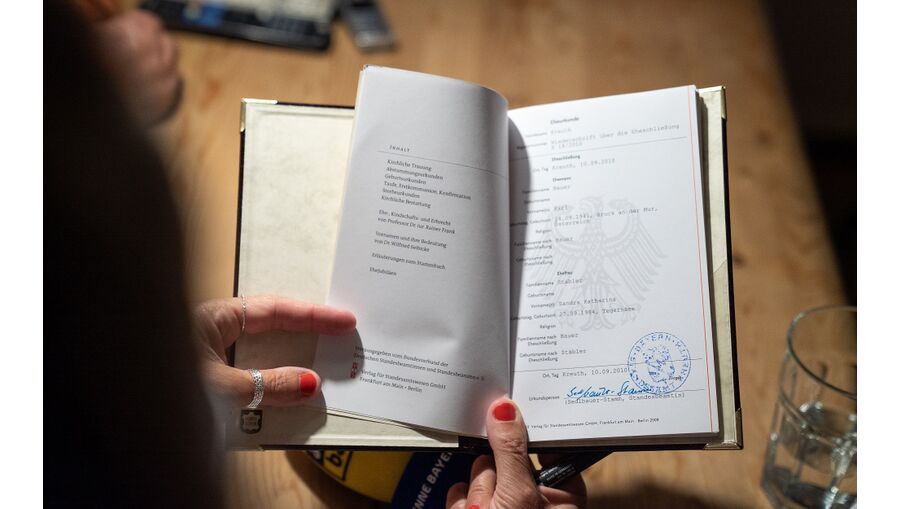 INHALT
Kirchliche Trauung
Abstammungsurkunden
Geburtsurkunden
Taufe, Erstkommunion, Konfirmation
Sterbeurkunden
Kirchliche Bestattung
Ehe-, Kindschafts- und Erbrecht
von Professor Dr. jur. Rainer Frank
Vornamen und ihre Bedeutung
von Dr. Wilfried Seibicke
Erläuterungen zum Stammbuch
Ehejubiläen
Herausgegeben vom Bundesverband der
Deutschen Standesbeamtinnen und Standesbeamten e.V.
Verlag für Standesamtswesen GmbH
Frankfurt am Main · Berlin
Eheurkunde
Kreuth
Niederschrift über die Eheschließung
E 18/2010
Eheschließung
Ort, Tag Kreuth, 10.09.2010
Ehemann
Familienname Bauer
Geburtsname
Vorname(n) Karl
Geburtstag, Geburtsort .09.1981, Bruck an der Mur,
Österreich
Religion
Familienname nach Bauer
Eheschließung
Ehefrau
Familienname Stäbler
Geburtsname
Vorname(n) Sandra Katharina
Geburtstag, Geburtsort 27.09.1984, Tegernsee
Religion
Familienname nach Bauer
Eheschließung
Geburtsname nach Stäbler
Eheschließung
Ort, Tag Kreuth, 10.09.2010
Urkundsperson (Sedlbauer-Stamh, Standesbeamtin)
Verlag für Standesamtswesen GmbH, Frankfurt am Main · Berlin 2009
ENNE BAYE